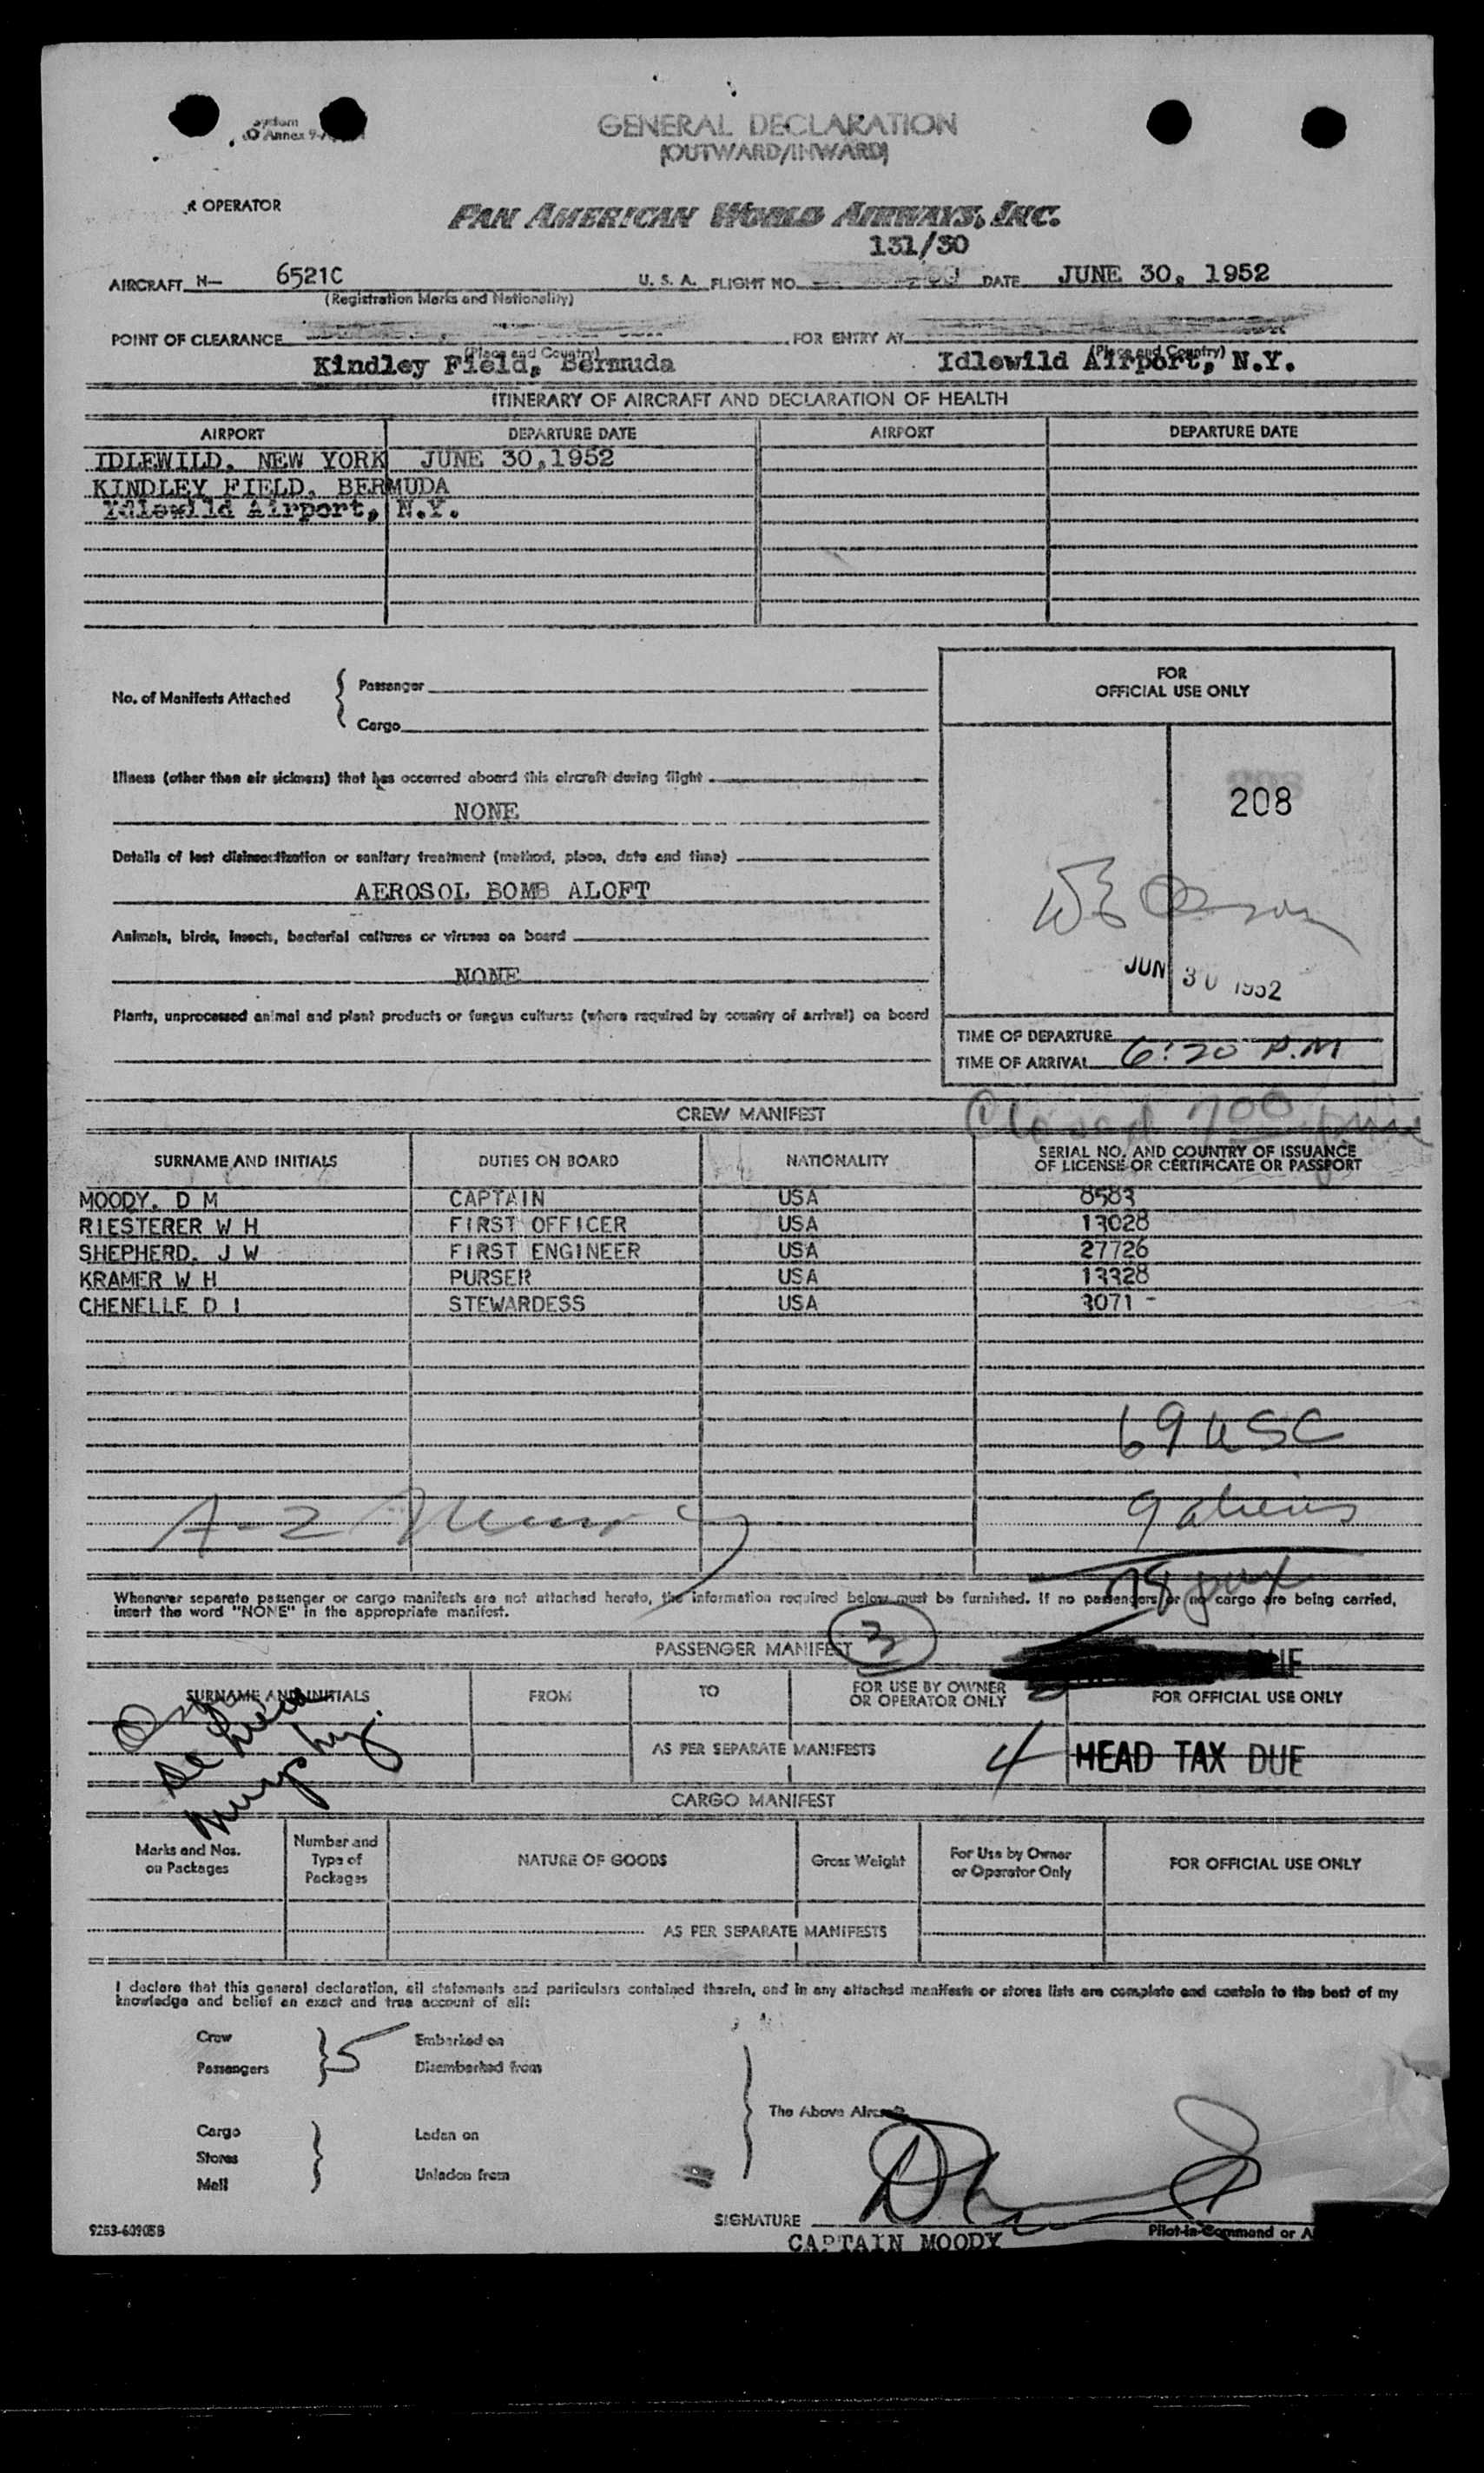 Annex 9
GENERAL DECLARATION
(OUTWARD/INWARD)
OPERATOR
PAN AMERICAN WORLD AIRWAYS, INC.
131/30
AIRCRAFT N- 6521C U. S. A. FLIGHT NO. DATE JUNE 30, 1952
(Registration Marks and Nationality)
POINT OF CLEARANCE FOR ENTRY AT
(Place and Country) (Place and Country)
Kindley Field, Bermuda Idlewild Airport, N.Y.
ITINERARY OF AIRCRAFT AND DECLARATION OF HEALTH
AIRPORT DEPARTURE DATE AIRPORT DEPARTURE DATE
IDLEWILD, NEW YORK JUNE 30,1952
KINDLEY FIELD, BERMUDA
Idlewild Airport, N.Y.
No. of Manifests Attached
Passenger
Cargo
FOR
OFFICIAL USE ONLY
Illness (other than air sickness) that has occurred aboard this aircraft during flight
NONE
208
Details of last disinsectization or sanitary treatment (method, place, date and time)
AEROSOL BOMB ALOFT
Animals, birds, insects, bacterial cultures or viruses on board
NONE
JUN 30 1952
Plants, unprocessed animal and plant products or fungus cultures (where required by country of arrival) on board
TIME OF DEPARTURE
TIME OF ARRIVAL 6:20 P.M
Closed 700
CREW MANIFEST
SURNAME AND INITIALS DUTIES ON BOARD NATIONALITY SERIAL NO. AND COUNTRY OF ISSUANCE
OF LICENSE OR CERTIFICATE OR PASSPORT
MOODY, D M CAPTAIN USA 8583
RIESTERER W H FIRST OFFICER USA 13028
SHEPHERD, J W FIRST ENGINEER USA 27726
KRAMER W H PURSER USA 13328
CHENELLE D I STEWARDESS USA 3071 -
69 USC
9 aliens
A-2
78 pax
Whenever separate passenger or cargo manifests are not attached hereto, the information required below must be furnished. If no passengers or no cargo are being carried,
insert the word "NONE" in the appropriate manifest.
PASSENGER MANIFEST
3
SURNAME AND INITIALS FROM TO FOR USE BY OWNER
OR OPERATOR ONLY FOR OFFICIAL USE ONLY
Murphy.
AS PER SEPARATE MANIFESTS
4 HEAD TAX DUE
CARGO MANIFEST
Marks and Nos.
on Packages
Number and
Type of
Packages
NATURE OF GOODS Gross Weight For Use by Owner
or Operator Only FOR OFFICIAL USE ONLY
AS PER SEPARATE MANIFESTS
I declare that this general declaration, all statements and particulars contained therein, and in any attached manifests or stores lists are complete and contain to the best of my
knowledge and belief an exact and true account of all:
Crew
Passengers
5
Embarked on
Disembarked from
The Above Aircraft
Cargo
Stores
Mail
Laden on
Unladen from
SIGNATURE
Pilot-in-Command or
CAPTAIN MOODY
9253-60905B